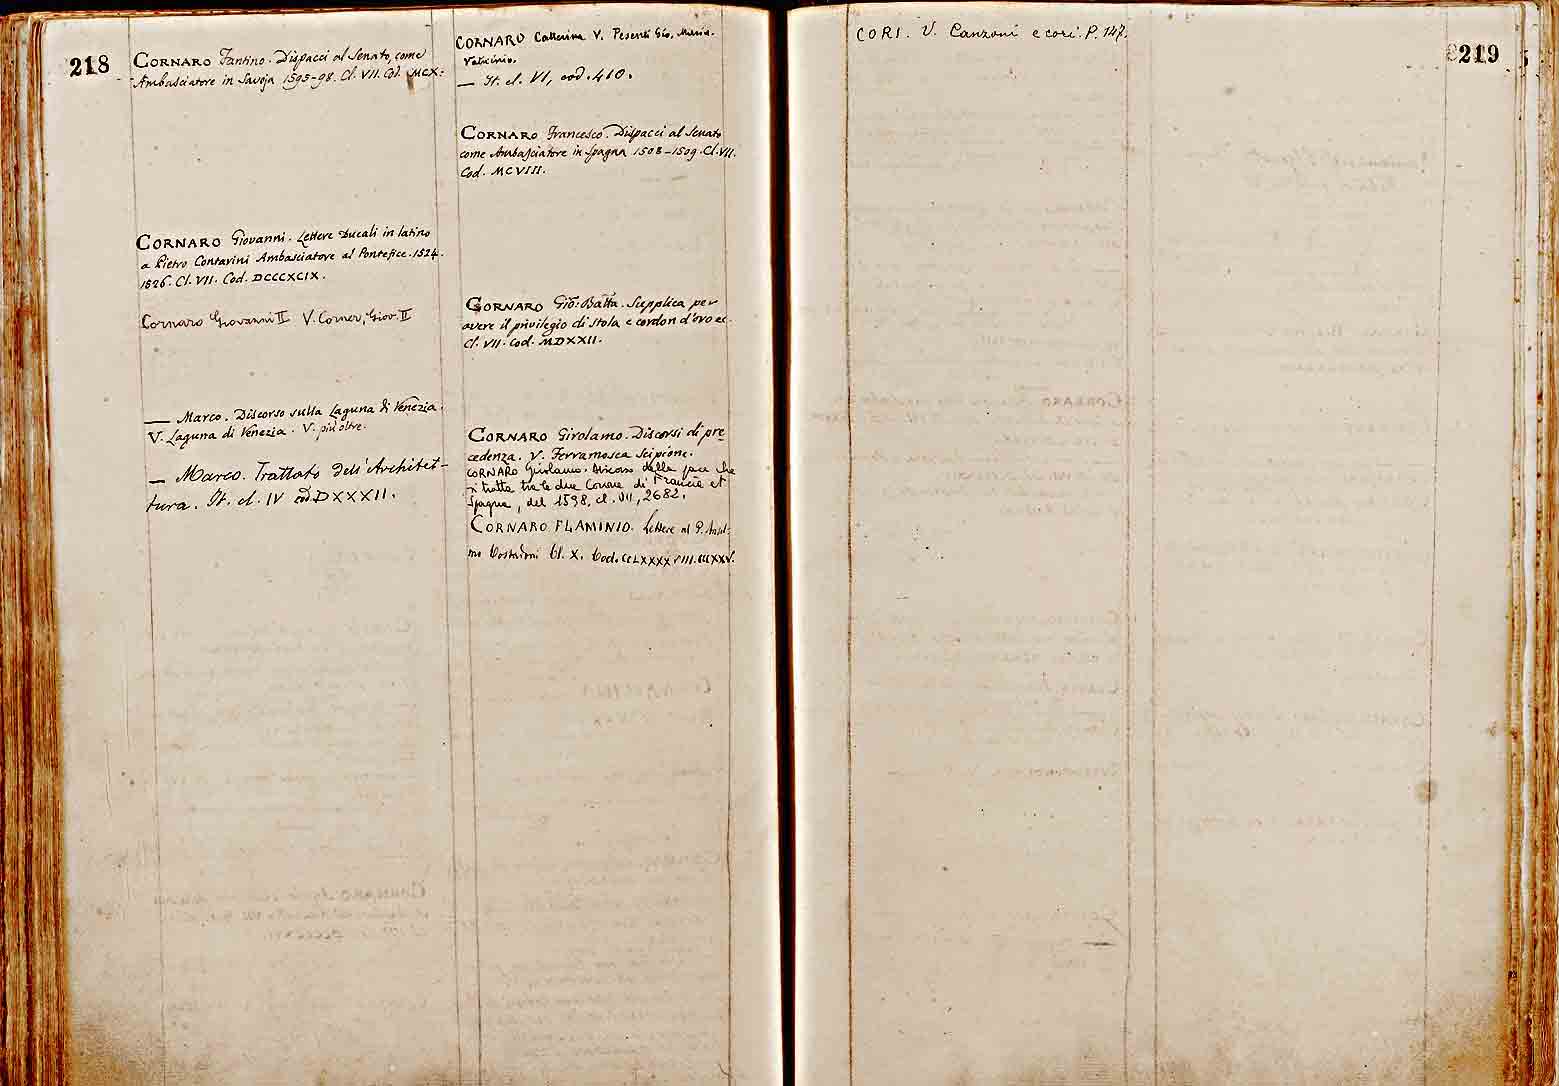 218
CORNARO Fantino. Dispacci al Senato, come
Ambasciatore in Savoja 1595-98. Cl. VII. Cod. MCX.
CORNARO Giovanni. Lettere Ducali in latino
a Pietro Contarini Ambasciatore al Pontefice. 1524.
1526. Cl. VII. Cod. DCCCXCIX.
Cornaro Giovanni II V. Corner, Giov. II
— Marco. Discorso sulla Laguna di Venezia.
V. Laguna di Venezia. V. più oltre.
— Marco. Trattato dell'Architet-
tura. It. cl. IV cod DXXXII.
CORNARO Catterina V. Pesenti Gio. Maria.
Vaticinio.
— It. cl. VI, cod. 410.
CORNARO Francesco. Dispacci al Senato
come Ambasciatore in Spagna 1508-1509. Cl. VII.
Cod. MCVIII.
CORNARO Gio: Batta. Supplica per
avere il privilegio di stola e cordon d'oro ec.
Cl. VII. Cod. MDXXII.
CORNARO Girolamo. Discorsi di pre
cedenza. V. Ferramosca Scipione.
CORNARO Girolamo. Discorso della pace che
si tratta tra le due Corone di Francia et
Spagna, del 1598. cl. VII, 2682.
CORNARO FLAMINIO. Lettere al P. Ansel-
mo Costadoni Cl. X. Cod.
219
CORI. V. Canzoni e cori. P. 147.